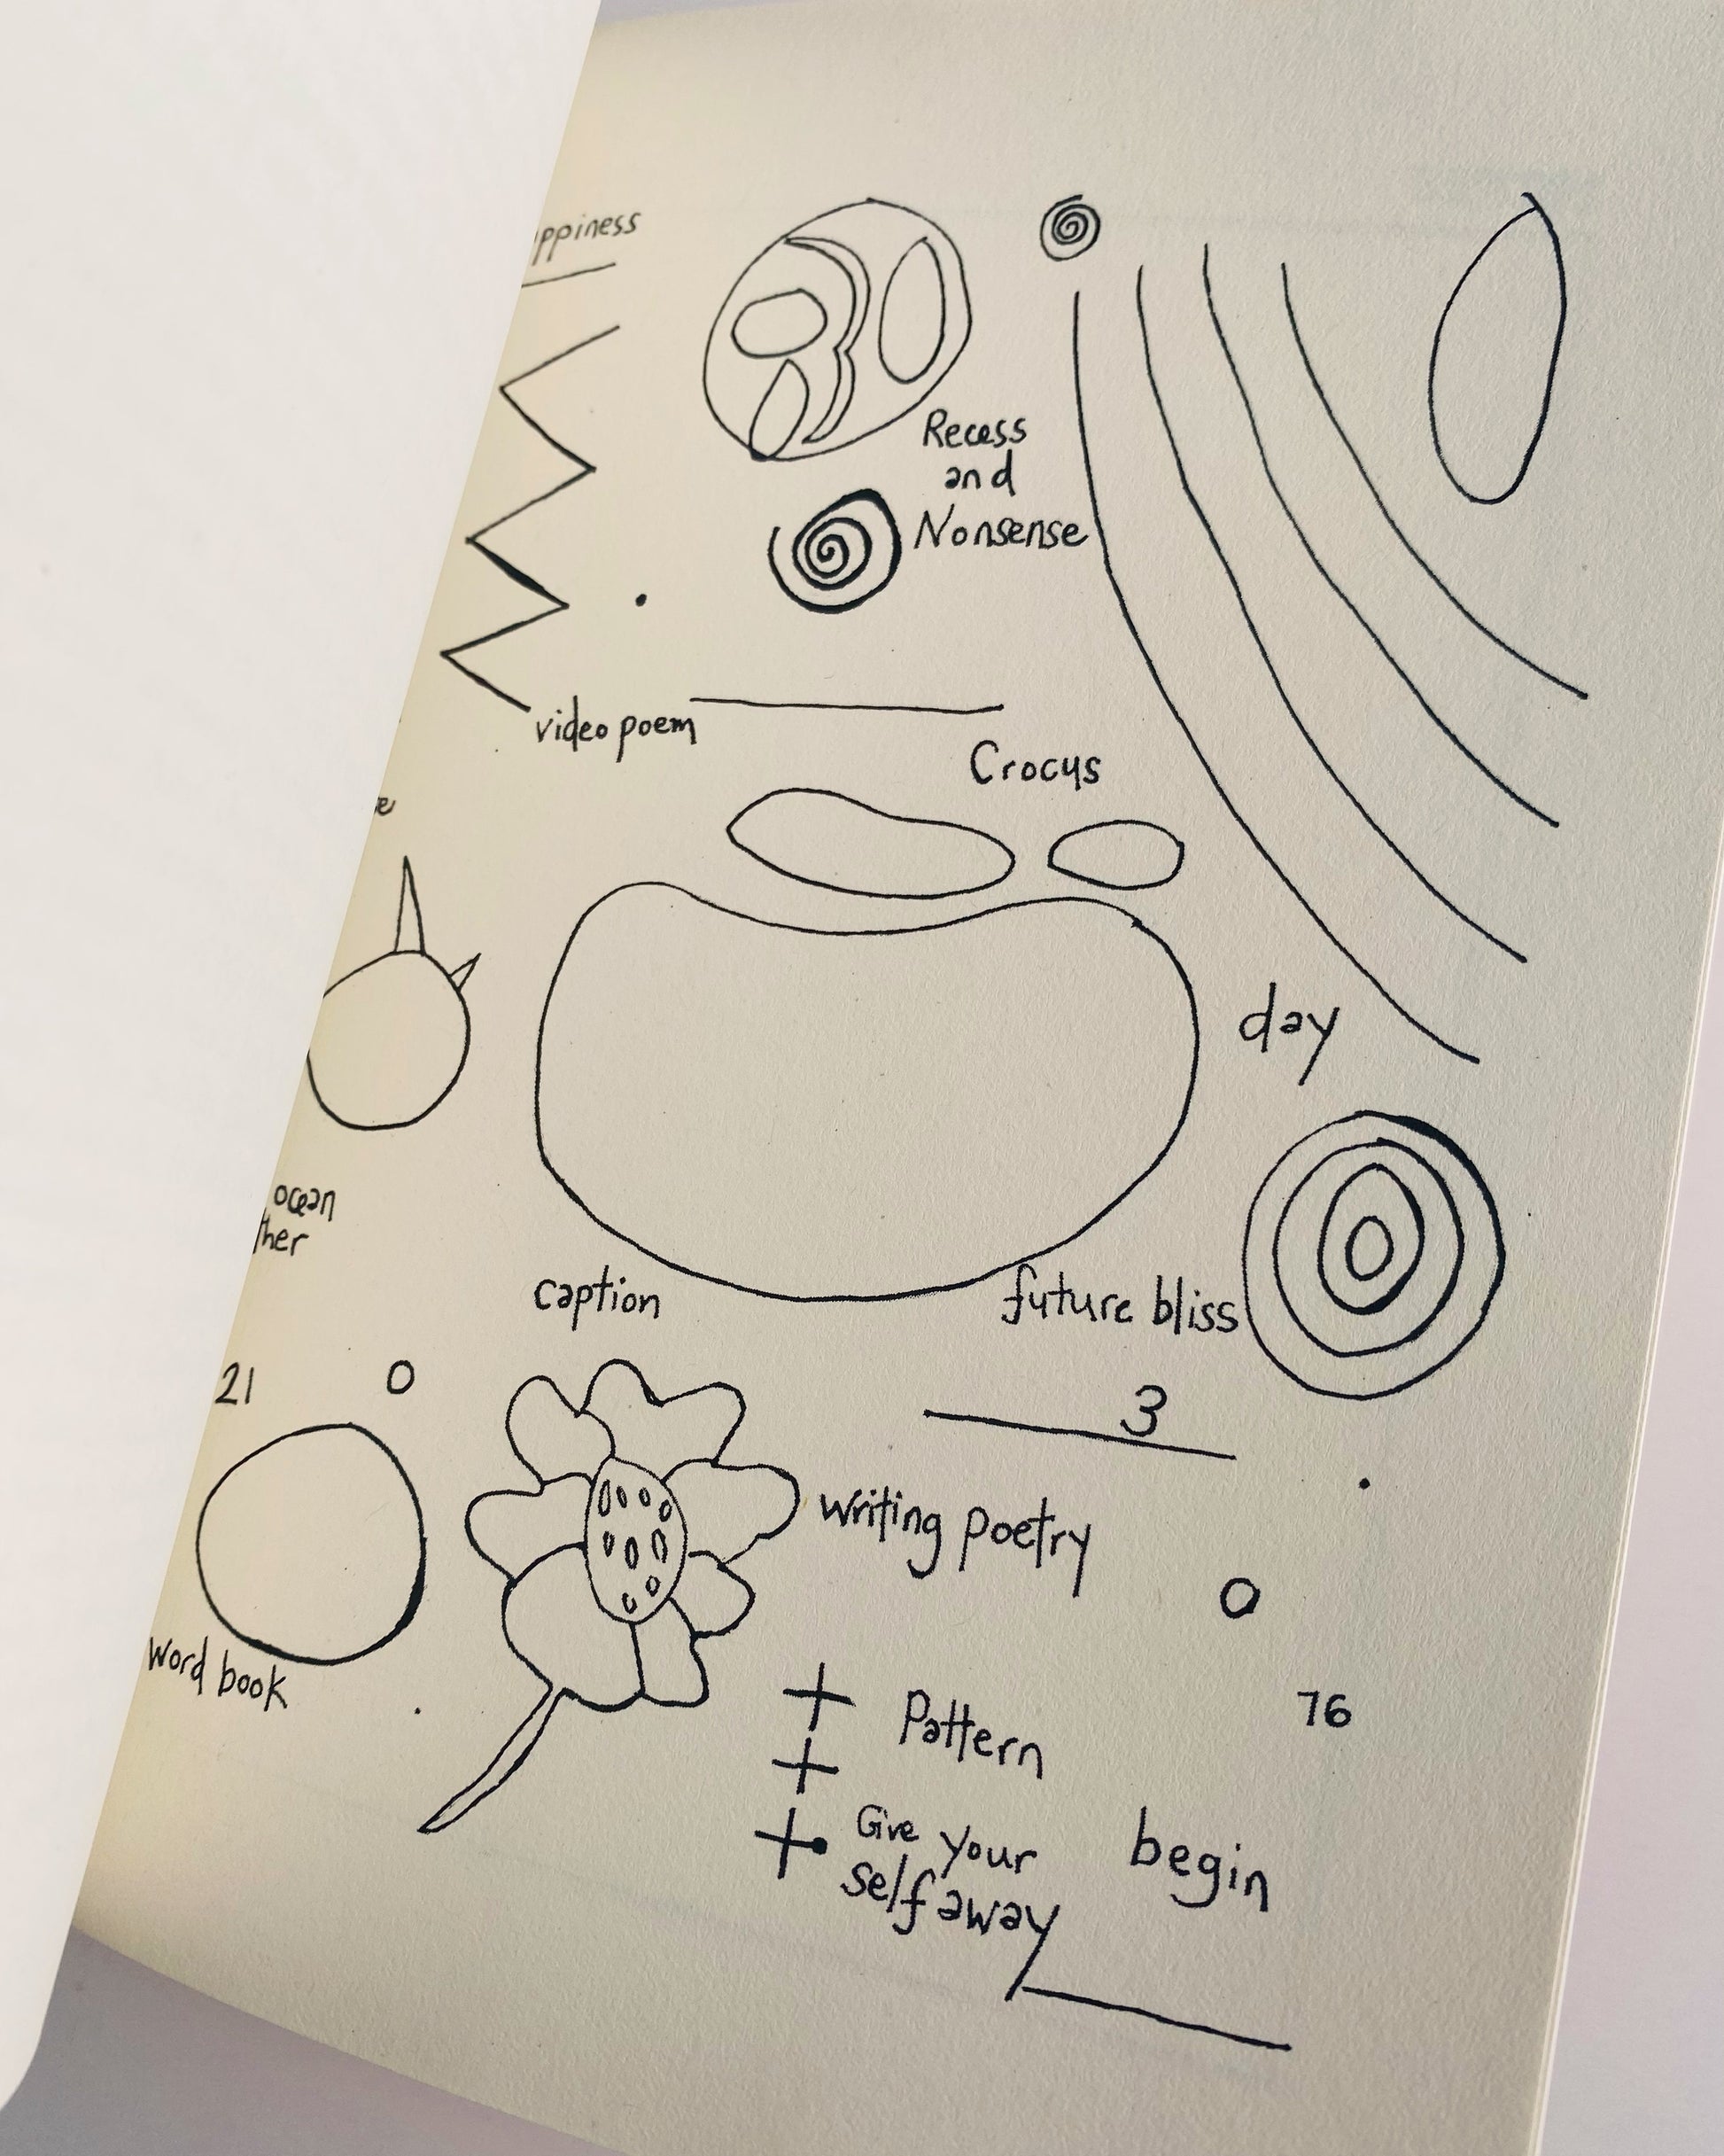 ppiness
Recess
and
Nonsense
video poem
Crocus
day
ocean
ther
caption
future bliss
21
3
writing poetry
word book
76
Pattern
Give your
self away
begin